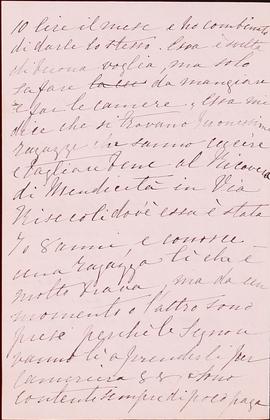 10 lire il mese e ho combinato
di darle lo stesso. Essa è svelta
di buona voglia, ma solo
sa fare da mangiare
e far le camere, essa mi
dice che si trovano buonissime
ragazze che sanno cucire
e tagliare bene al Ricovero
di Mendicità in Via
dov'è essa è stata
7 o 8 anni e conosce
una ragazza lì che è
molto brava, ma da un
momento a l'altro sono
prese perchè le Signore
vanno lì a prenderli per
cameriera &&. Sono
contenti sempre di poca paga